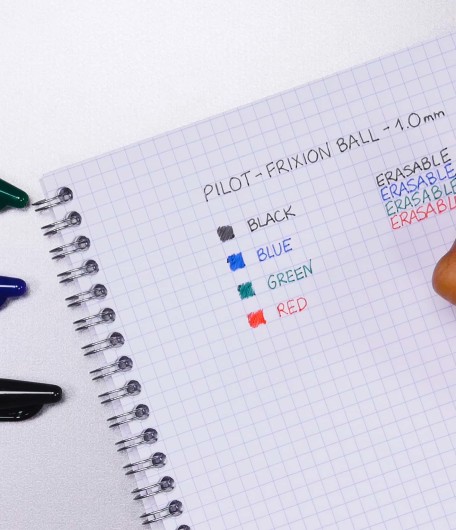 PILOT-FRIXION BALL-1.0mm
BLACK
BLUE
GREEN
RED
ERASABLE
ERASABLE
ERASABLE
ERASABLE